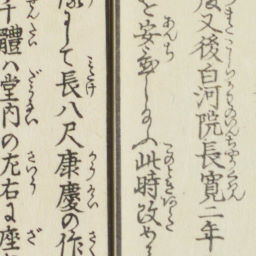 又後白河院長寛二年
を安置し給ふ此時改め
して長八尺康慶の作
千體ハ堂内の左右に座